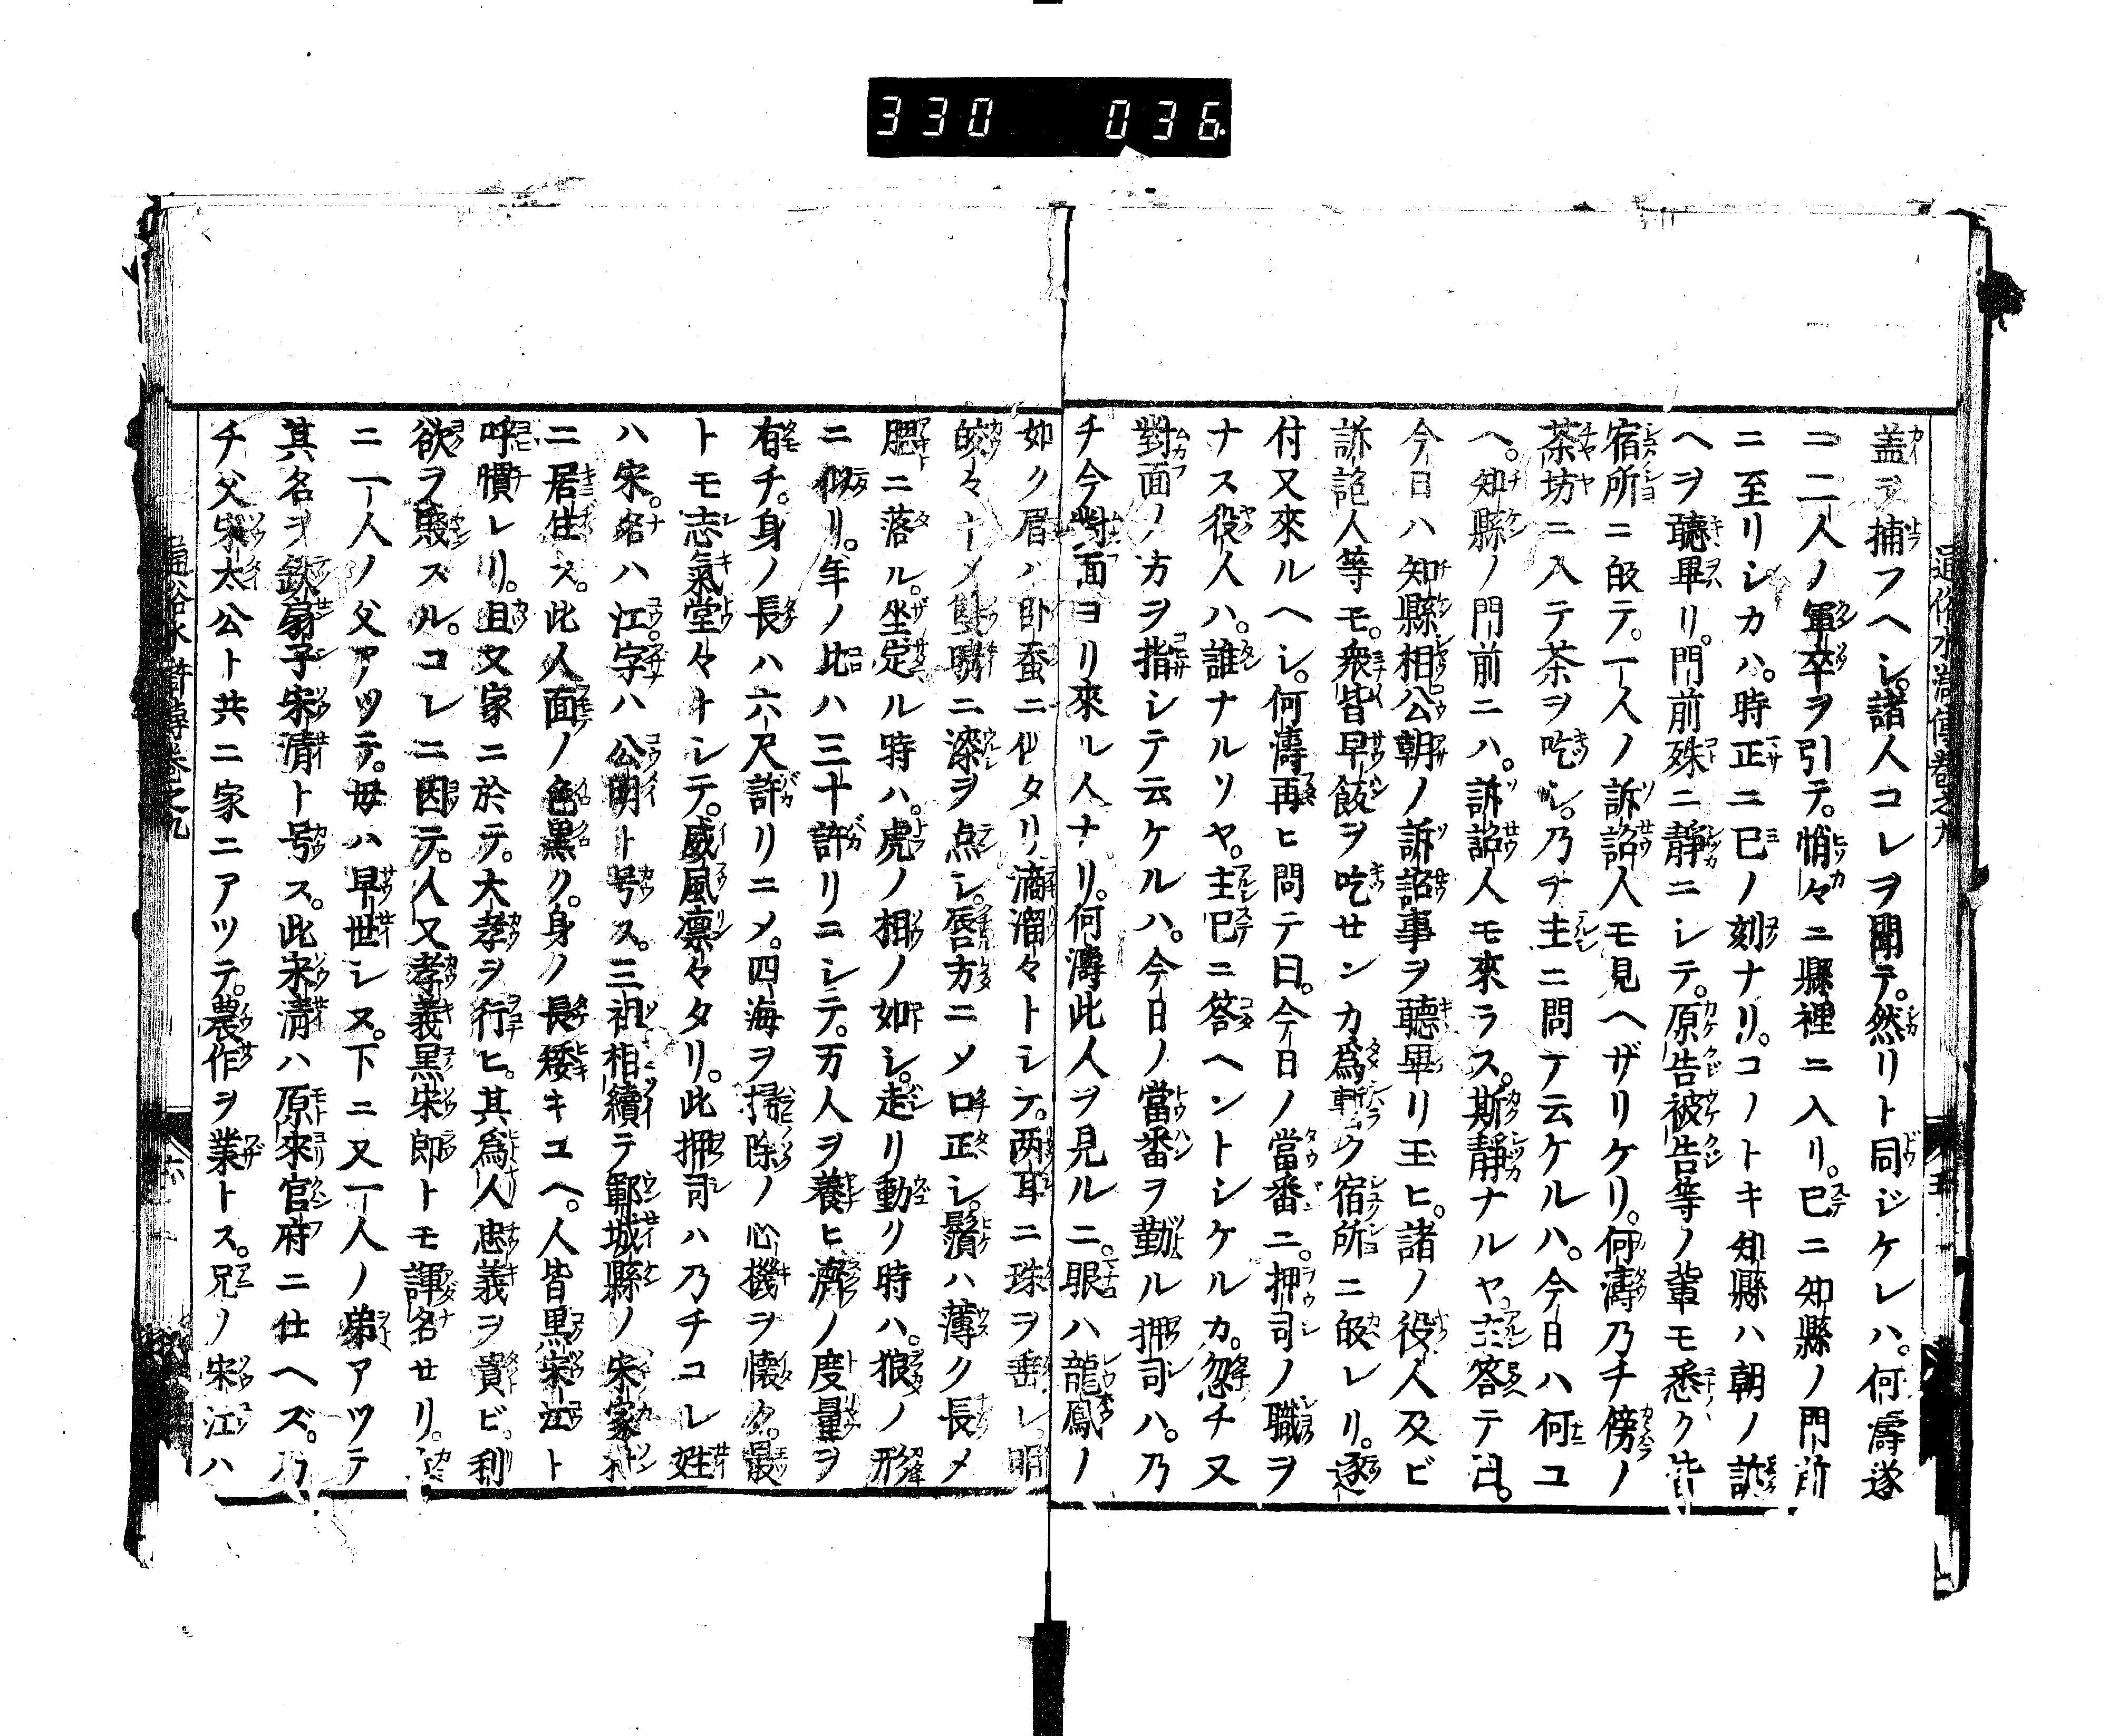 330 036
通俗水滸傳卷之九
盖ヲ捕フヘシ。諸人コレヲ聞テ。然リト同ジケレハ。何濤遂
ニ二人ノ軍卒ヲ引テ。悄々ニ縣裡ニ入リ。已ニ知縣ノ門前
ニ至リシカハ。時正ニ巳ノ刻ナリ。コノトキ知縣ハ朝ノ訴
ヘヲ聽畢リ。門前殊ニ靜ニシテ。原告被告等ノ輩モ悉ク皆
宿所ニ皈テ。一人ノ訴詔人モ見ヘザリケリ。何濤乃チ傍ノ
茶坊ニ入テ茶ヲ吃シ。乃チ主ニ問テ云ケルハ。今日ハ何ユ
ヘ。知縣ノ門前ニハ。訴詔人モ來ラス。斯靜ナルヤ。主答テ曰。
今日ハ知縣相公朝ノ訴詔事ヲ聽畢リ玉ヒ。諸ノ役人及ビ
訴詔人等モ。衆皆早飯ヲ吃センカ爲。暫ク宿所ニ皈レリ。逐
付又來ルヘシ。何濤再ヒ問テ曰。今日ノ當番ニ。押司ノ職ヲ
ナス役人ハ。誰ナルソヤ。主已ニ答ヘントシケルカ。忽チ又
對面ノ方ヲ指シテ云ケルハ。今日ノ當番ヲ勤ル押司ハ。乃
チ今對面ヨリ來ル人ナリ。何濤此人ヲ見ルニ。眼ハ龍鳳ノ
如ク眉ハ卧蚕ニ似タリ滴溜々トシテ。两耳ニ珠ヲ垂レ。明
皎々トメ雙睛ニ漆ヲ点シ。唇方ニメ口正シ。鬚ハ薄ク長メ
腮ニ落ル。坐定ル時ハ。虎ノ相ノ如シ。走リ動ク時ハ。狼ノ形
ニ似リ。年ノ比ハ三十許リニシテ。万人ヲ養ヒ濟ノ度量ヲ
有チ。身ノ長ハ六尺許リニメ。四海ヲ掃除ノ心機ヲ懐ク。最
トモ志氣堂々トシテ。威風凛々タリ。此押司ハ乃チコレ姓
ハ宋。名ハ江。字ハ公明ト号ス。三祖相續テ鄆城縣ノ宋家村
ニ居住ス。此人面ノ色黒ク。身ノ長矮キユヘ。人皆黒宋江ト
呼慣レリ。且又家ニ於テ。大孝ヲ行ヒ。其爲人忠義ヲ貴ビ。利
欲ヲ賤スル。コレニ因テ。人又孝義黒宋郎トモ諢名セリ。
ニ一人ノ父アツテ。毋ハ早世シヌ。下ニ又一人ノ弟アツテ
其名ヲ鉄扇子宋清ト号ス。此宋清ハ原來官府ニ仕ヘズ。乃
チ父宋太公ト共ニ家ニアツテ。農作ヲ業トス。兄ノ宋江ハ
通俗水滸傳卷之九
六